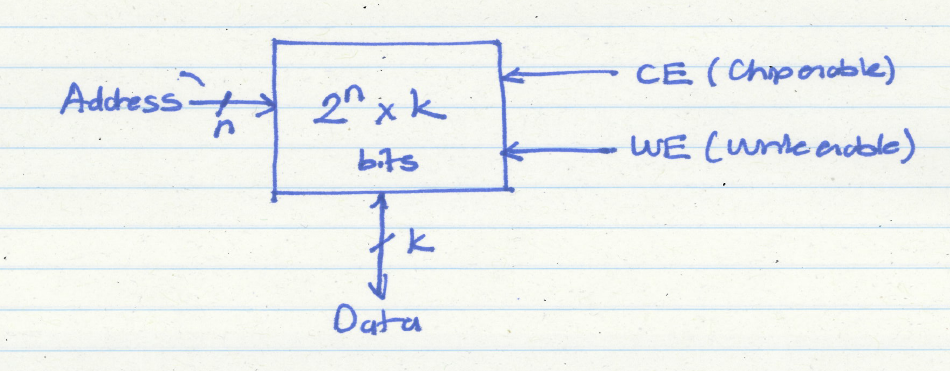 Address
n
2ⁿ x k
bits
CE (Chip enable)
WE (Write enable)
k
Data